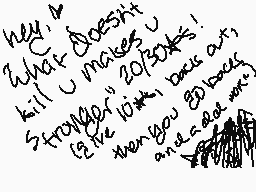 hey,
What doesn't
kill u makes u
stronger" 20/30★s!
(give 10★, basis out,
then you 20 backs
and add more)